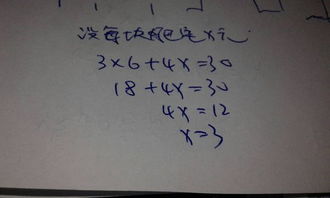 设每块橡皮是x元
3×6+4x=30
18+4x=30
4x=12
x=3